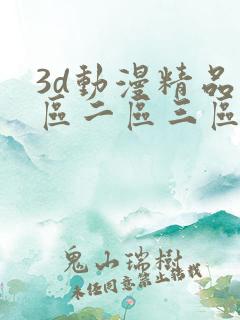 3d動漫精品
區二區三區
鬼山瑞樹
未经同意禁止转载